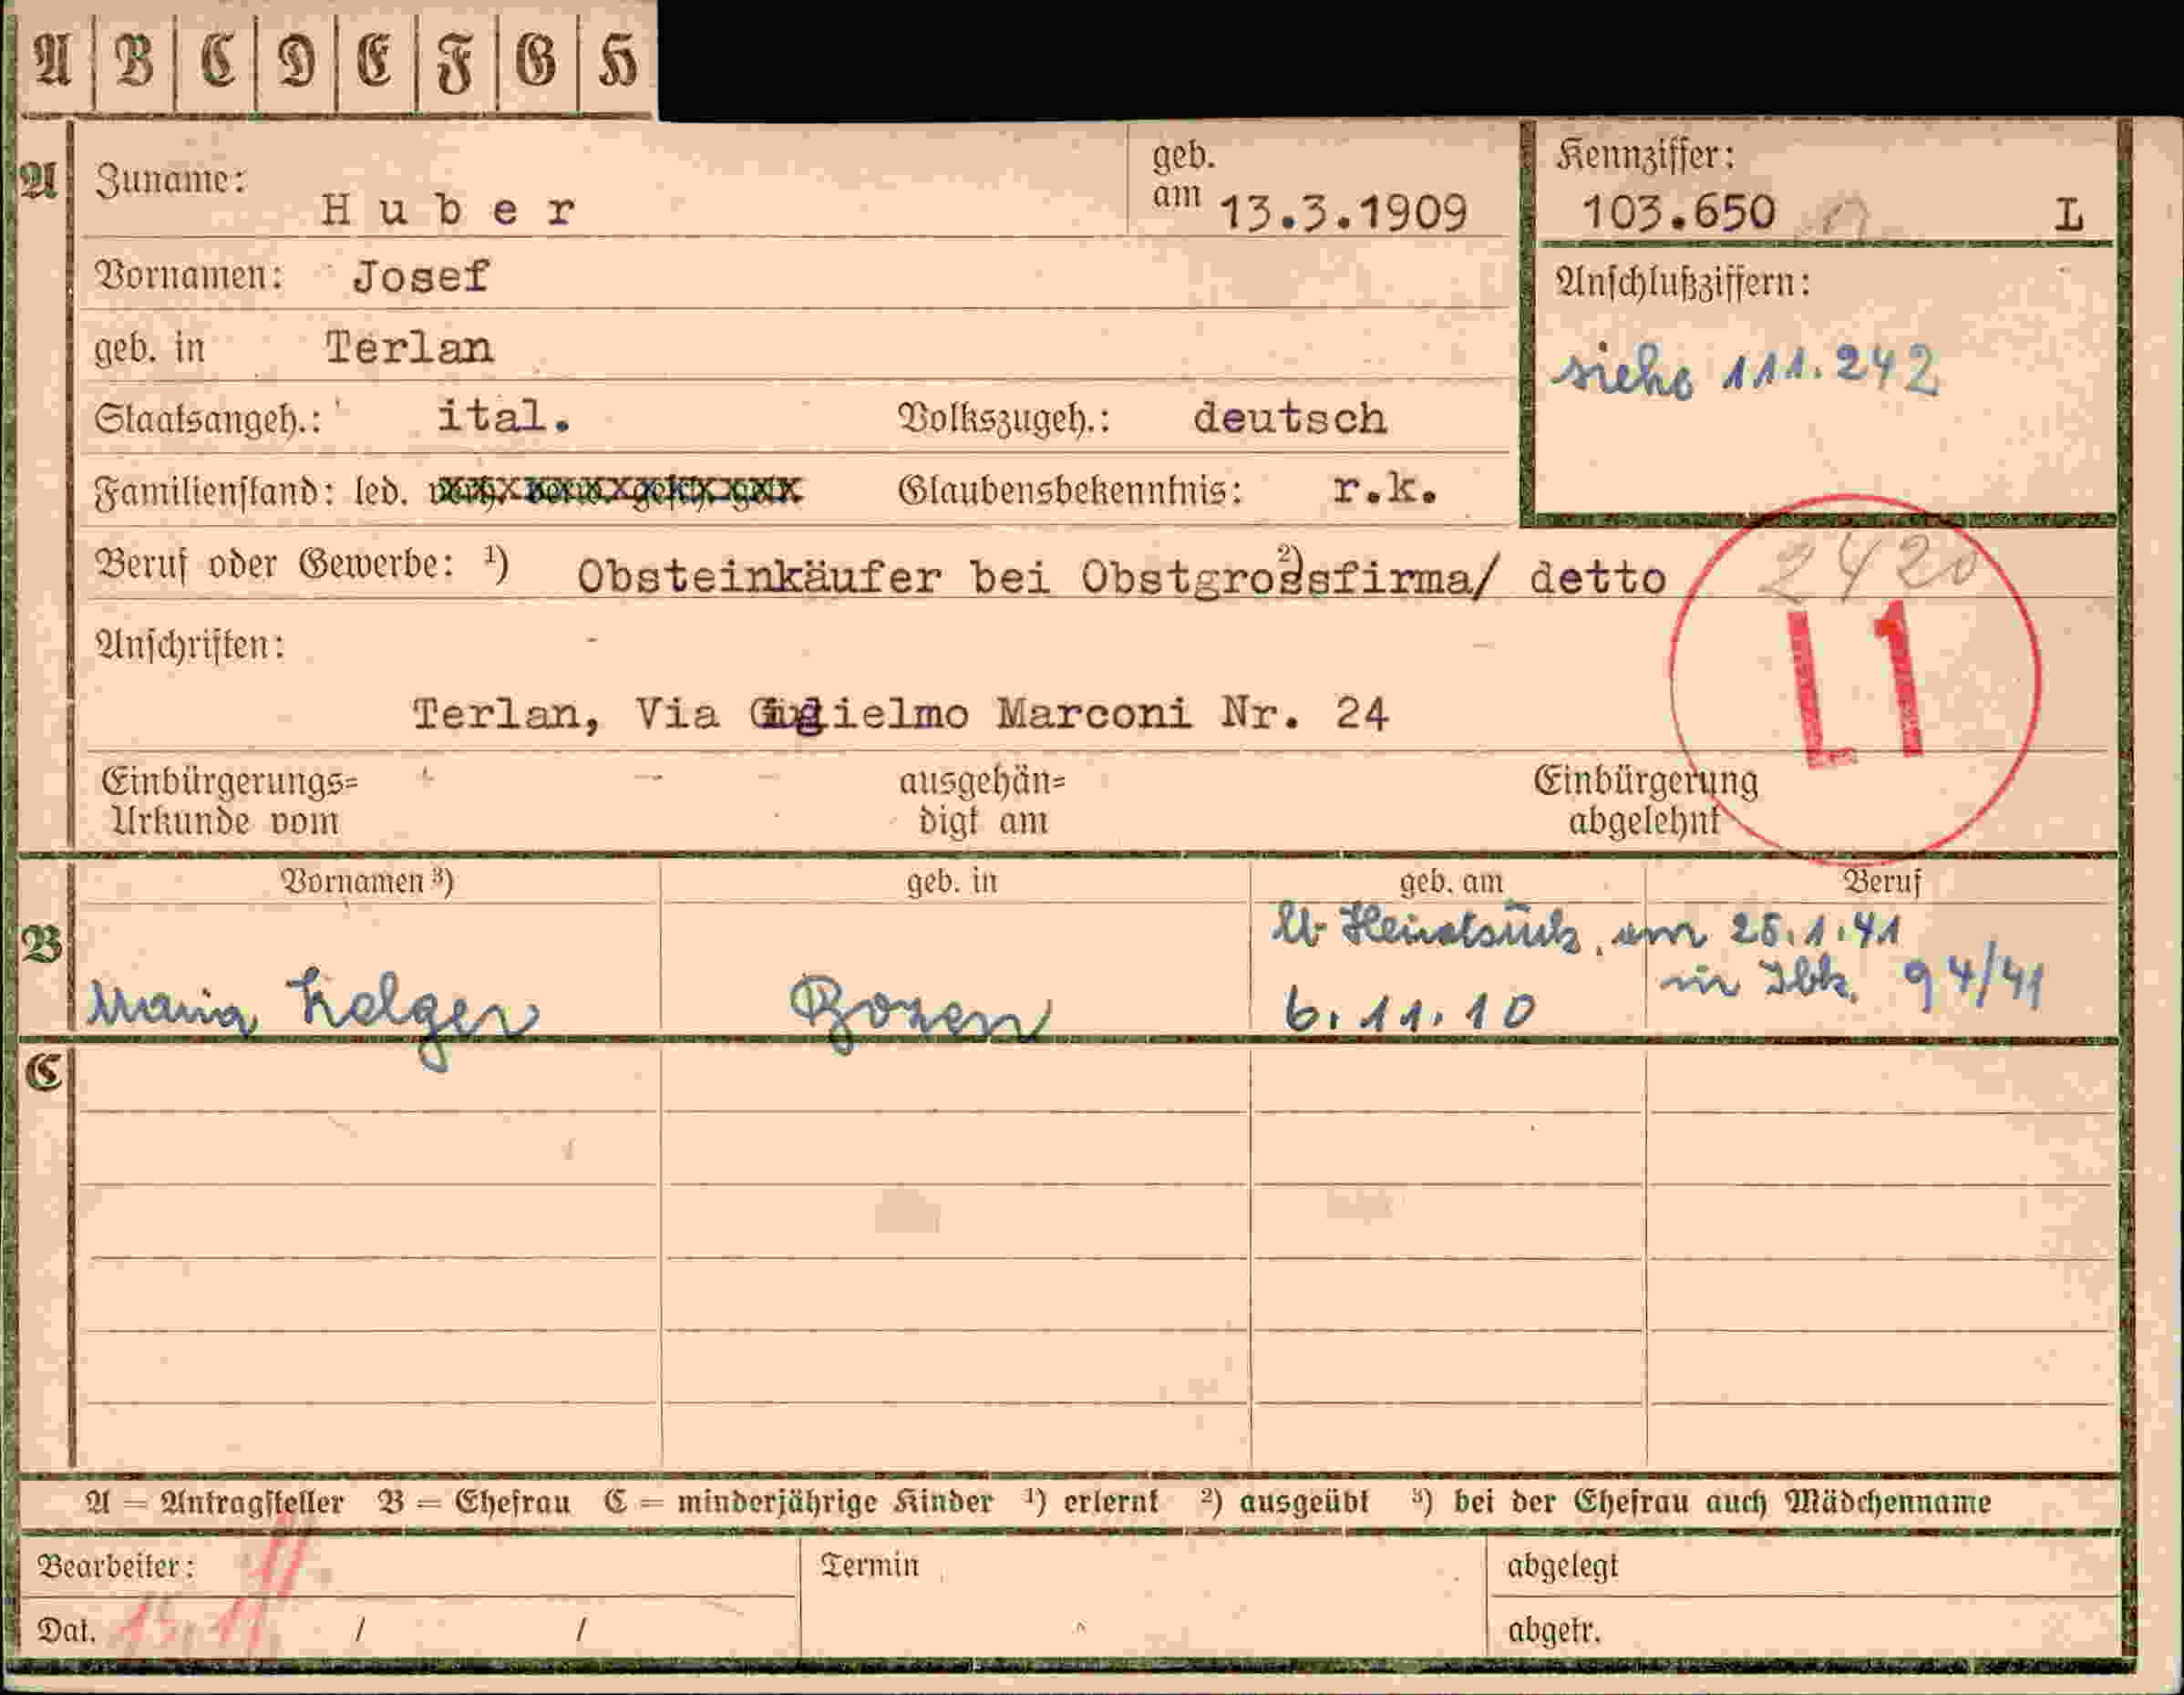 A B C D E F G H
A Zuname: Huber geb. am 13.3.1909 Kennziffer: 103.650 L
Vornamen: Josef Anschlußziffern:
geb. in Terlan siehe 111.242
Staatsangeh.: ital. Volkszugeh.: deutsch
Familienstand: led. Glaubensbekenntnis: r.k.
Beruf oder Gewerbe: ¹) Obsteinkäufer bei Obstgrossfirma/ ²) detto 2420
Anschriften: L1
Terlan, Via Guglielmo Marconi Nr. 24
Einbürgerungs= ausgehän= Einbürgerung
Urkunde vom digt am abgelehnt
Vornamen ³) geb. in geb. am Beruf
B am 25.1.41
in Ibk. 94/41
Maria Bozen 6.11.10
C
A = Antragsteller B = Ehefrau C = minderjährige Kinder ¹) erlernt ²) ausgeübt ³) bei der Ehefrau auch Mädchenname
Bearbeiter: Termin abgelegt
Dat. 13.11 / / abgetr.